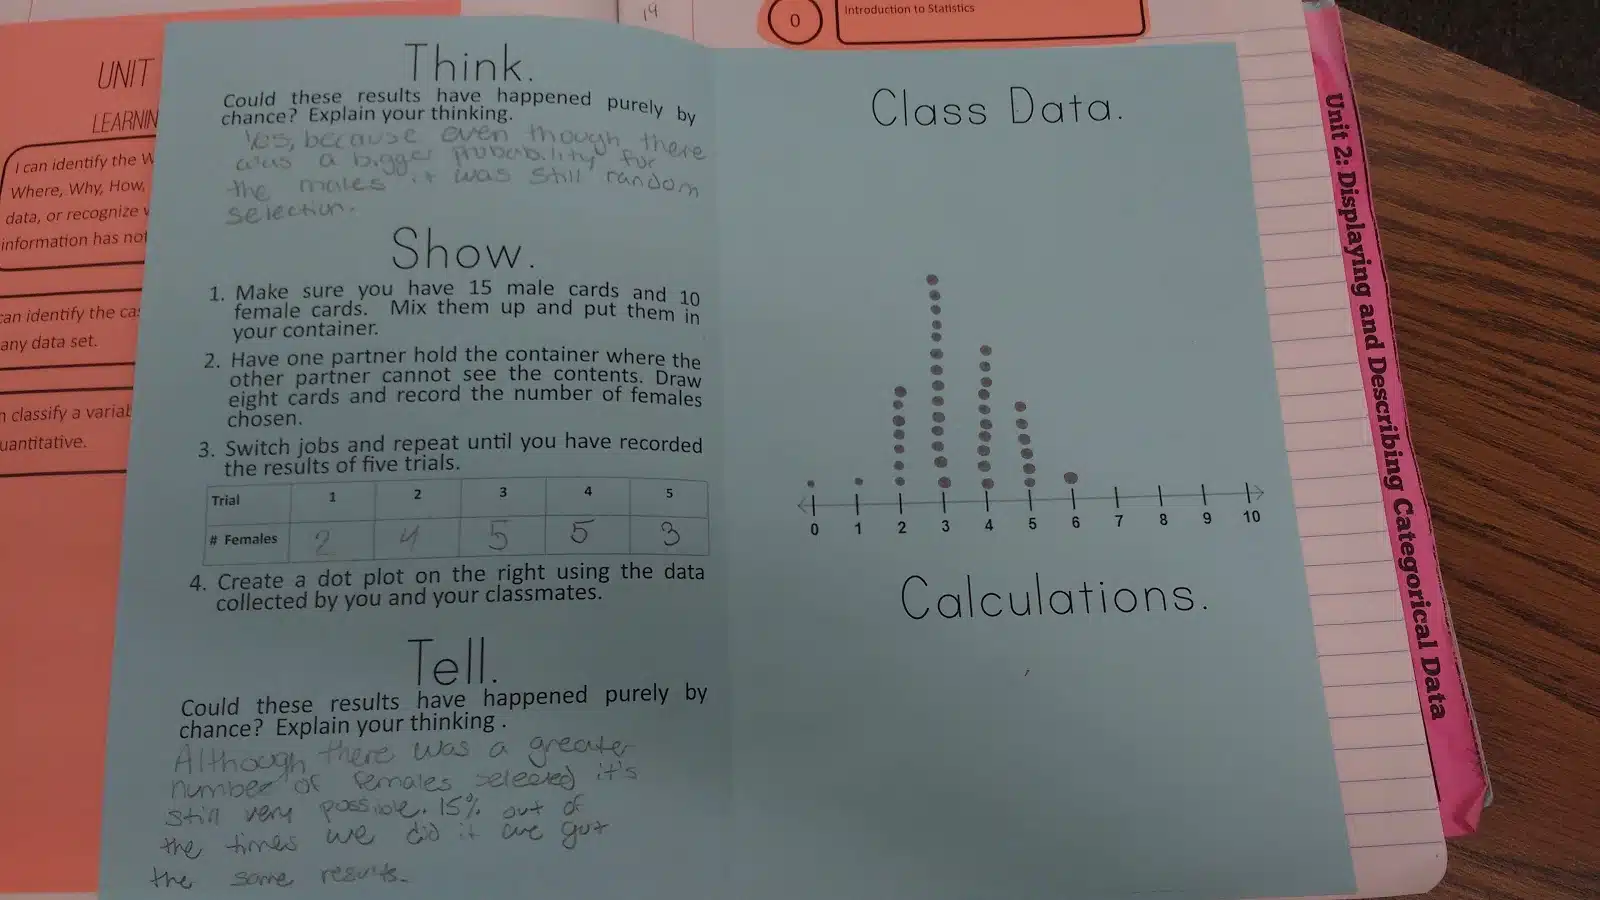 UNIT
LEARNIN
I can identify the W
Where, Why, How,
data, or recognize
information has not
can identify the cas
any data set.
n classify a variabl
uantitative.
19
0
Introduction to Statistics
Think.
Could these results have happened purely by
chance? Explain your thinking.
Yes, because even though there
was a bigger probability for
the males it was still random
selection.
Show.
1. Make sure you have 15 male cards and 10
female cards. Mix them up and put them in
your container.
2. Have one partner hold the container where the
other partner cannot see the contents. Draw
eight cards and record the number of females
chosen.
3. Switch jobs and repeat until you have recorded
the results of five trials.
Trial 1 2 3 4 5
# Females 2 4 5 5 3
4. Create a dot plot on the right using the data
collected by you and your classmates.
Tell.
Could these results have happened purely by
chance? Explain your thinking .
Although there was a greater
number of females selected it's
still very possible. 15% out of
the times we did it we got
the same results.
Class Data.
0 1 2 3 4 5 6 7 8 9 10
Calculations.
Unit 2: Displaying and Describing Categorical Data